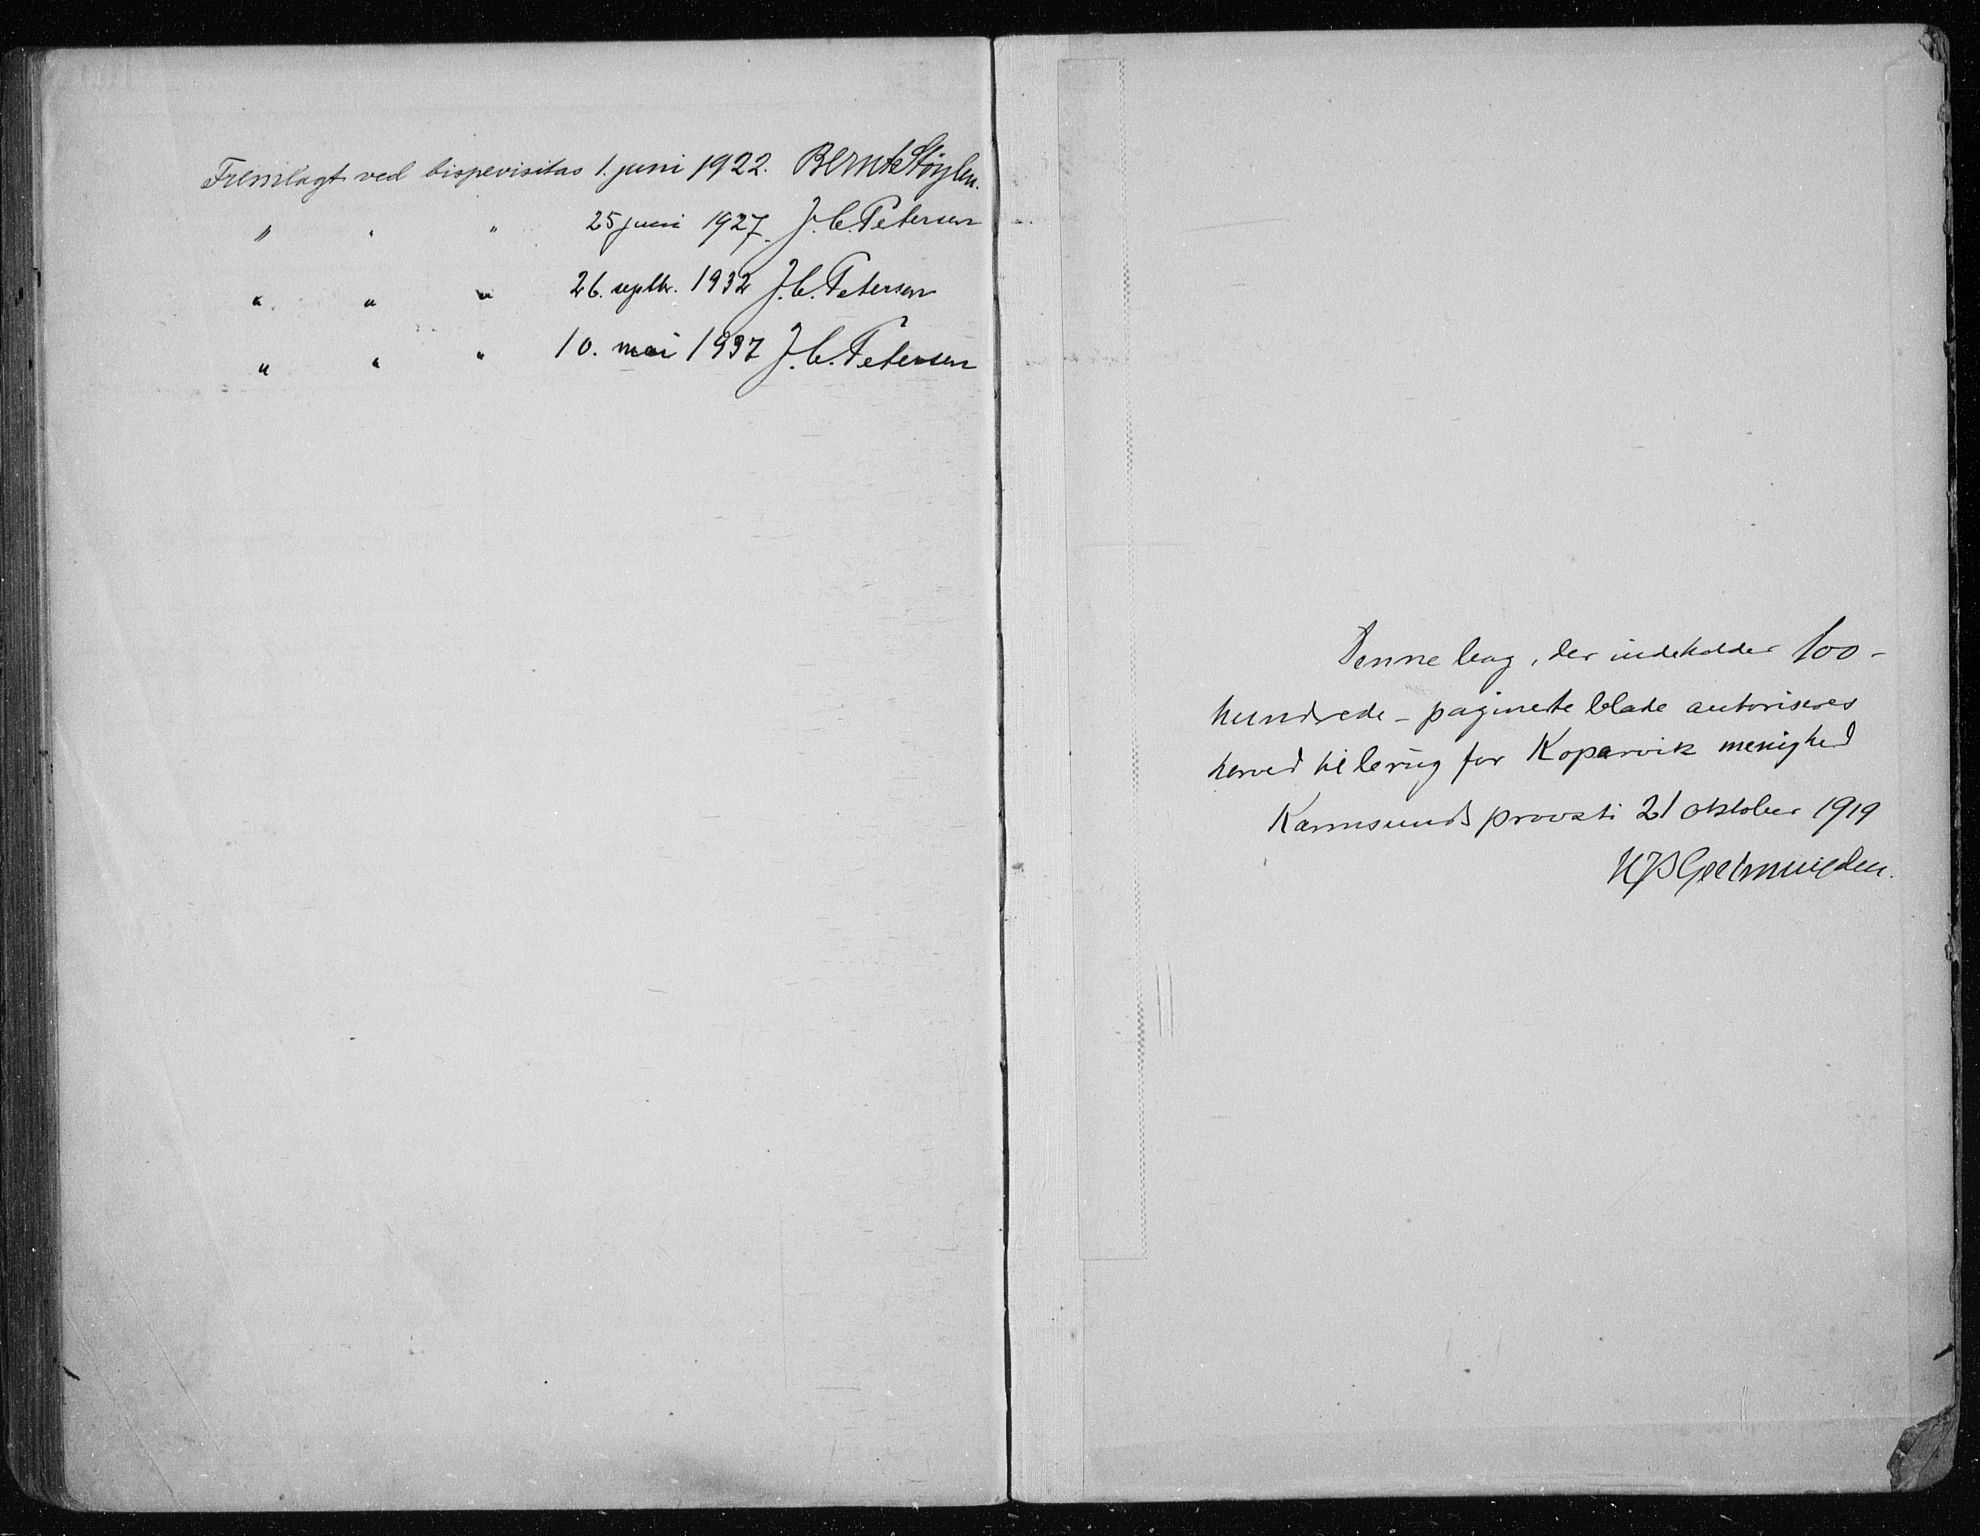 Fremlagt ved bispevisitas 1. juni 1922. Bernt Støylen.
" " " 25 juni 1927. J. C. Petersen
" " " 26. septbr. 1932 J. C. Petersen
" " " 10. mai 1937 J. C. Petersen
Denne bog, der indeholder 100 –
hundrede – paginerte blade autoriseres
herved til brug for Kopervik menighed
Karmsunds provsti 21 oktober 1919
Geelmuyden.